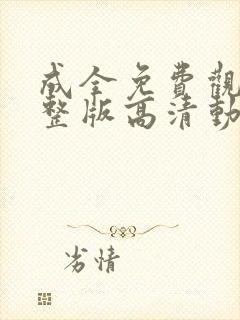 成全免費觀
整版高清動
劣情